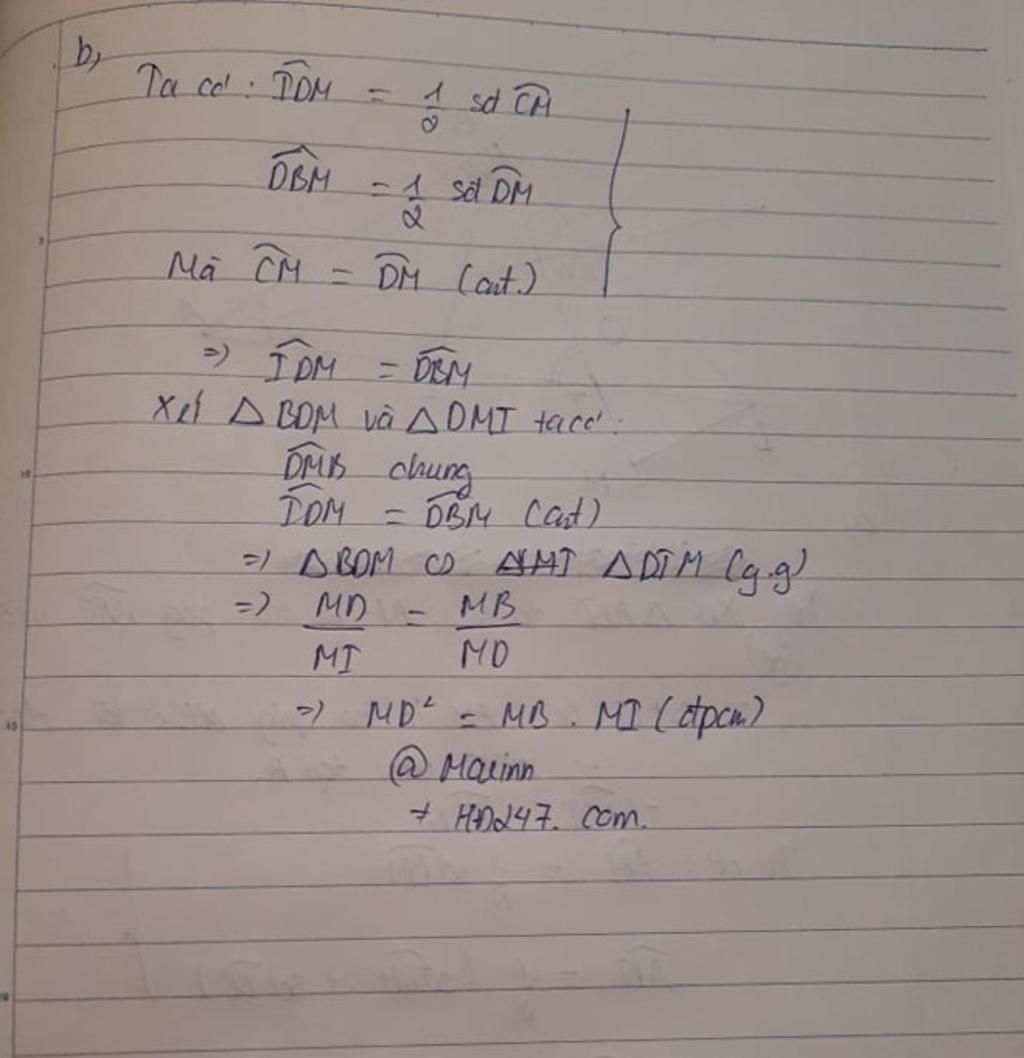 b,
Ta có : IDM = 1/2 sđ CM
DBM = 1/2 sđ DM
Mà CM = DM (cmt.)
=> IDM = DBM
Xét △BDM và △DMI ta có :
DMB chung
IDM = DBM (cmt)
=> △BDM ∽ △DIM (g.g)
=> MD/MI = MB/MD
=> MD² = MB . MI (đpcm)
+ HD247. com.